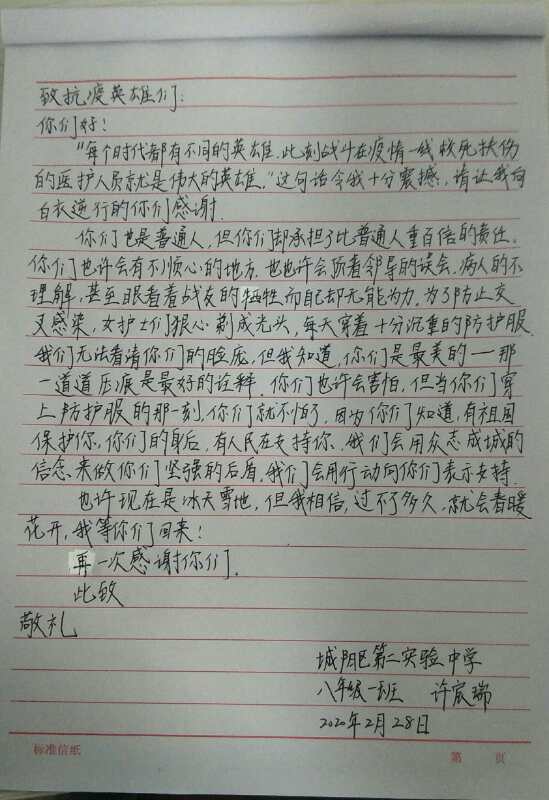 致抗疫英雄们:
你们好!
"每个时代都有不同的英雄,此刻战斗在疫情一线救死扶伤
的医护人员就是伟大的英雄。"这句话令我十分震撼,请让我向
白衣逆行的你们感谢.
你们也是普通人,但你们却承担了比普通人重百倍的责任.
你们也许会有不顺心的地方.也也许会顶着邻导的误会,病人的不
理解,甚至眼看着战友的牺牲而自己却无能为力.为了防止交
叉感染,女护士们狠心剃成光头,每天穿着十分沉重的防护服.
我们无法看清你们的脸庞,但我知道,你们是最美的——那
一道道压痕是最好的诠释.你们也许会害怕,但当你们穿
上防护服的那一刻,你们就不怕了,因为你们知道,有祖国
保护你,你们的身后,有人民在支持你.我们会用众志成城的
信念来做你们坚强的后盾,我们会用行动向你们表示支持.
也许现在是冰天雪地,但我相信,过不了多久,就会春暖
花开,我等你们回来!
再一次感谢你们.
此致
敬礼
城阳区第二实验中学
八年级一班 许宸瑞
2020年2月28日
标准信纸
第 页